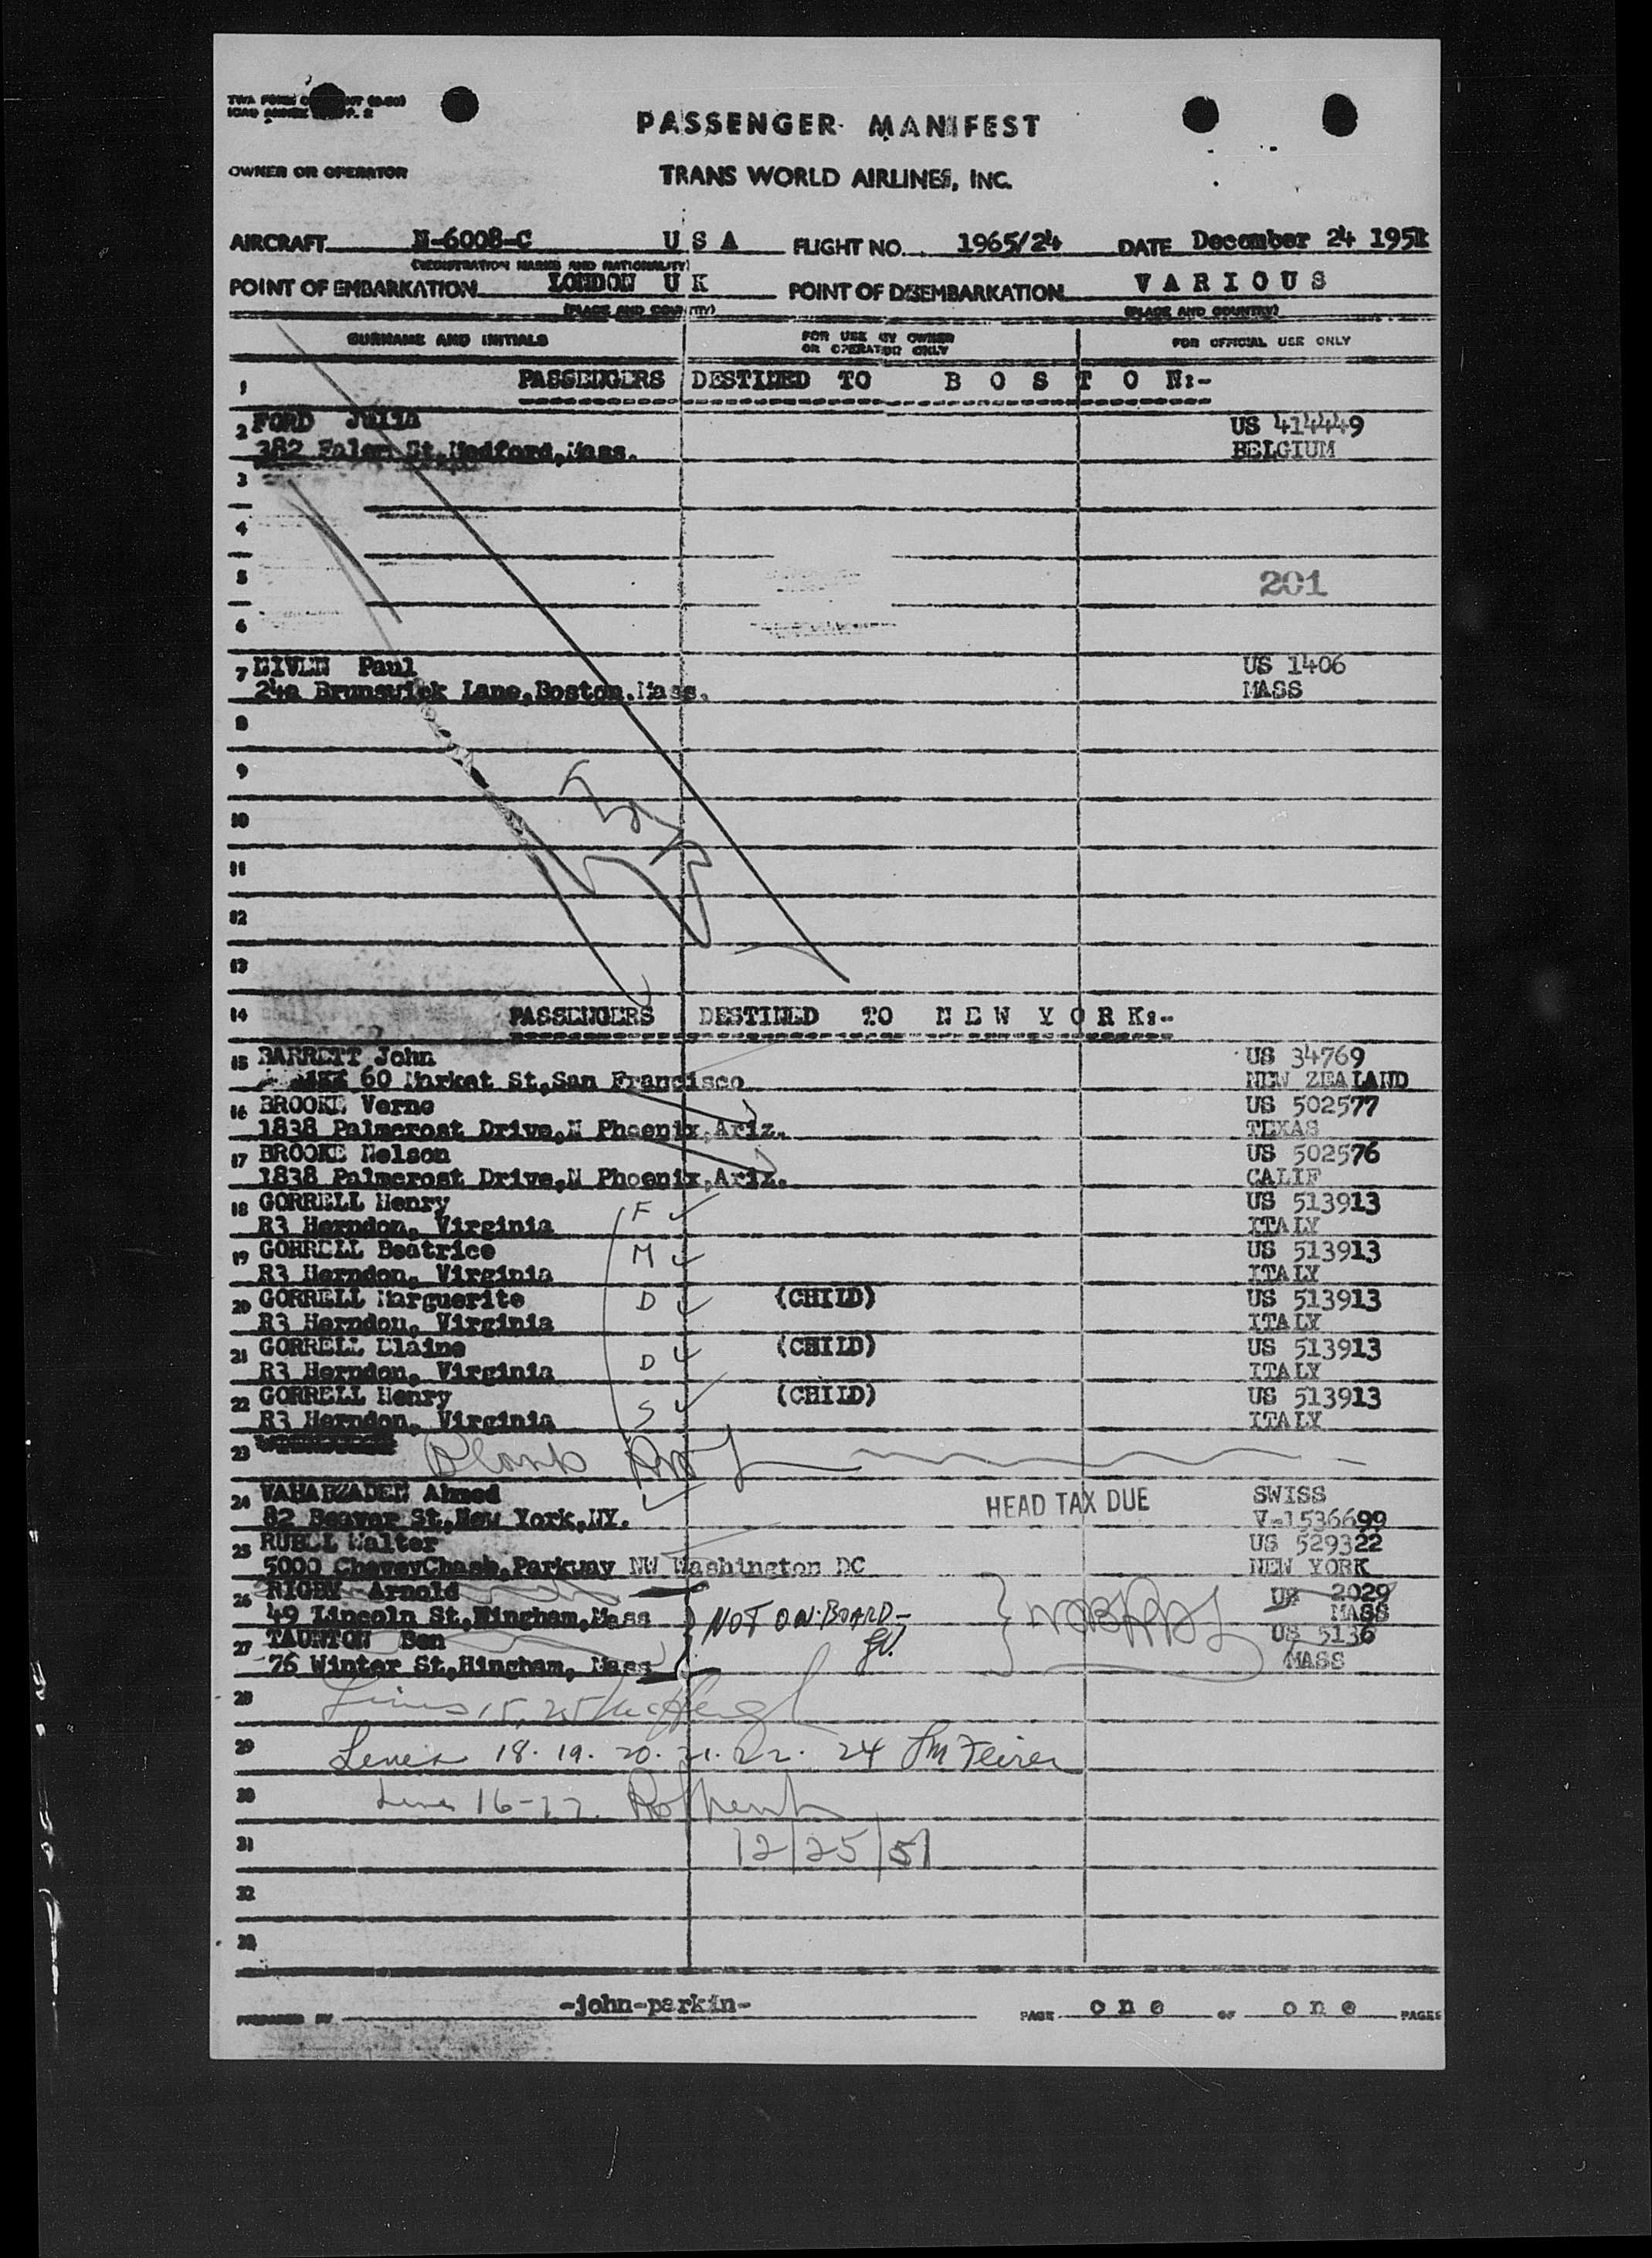 PASSENGER MANIFEST
OWNER OR OPERATOR TRANS WORLD AIRLINES, INC.
AIRCRAFT N-6008-C U S A FLIGHT NO. 1965/24 DATE December 24 1951
(REGISTRATION MARKS AND NATIONALITY)
POINT OF EMBARKATION LONDON U K POINT OF DISEMBARKATION V A R I O U S
(PLACE AND COUNTRY) (PLACE AND COUNTRY)
SURNAME AND INITIALS FOR USE BY OWNER OR OPERATOR ONLY FOR OFFICIAL USE ONLY
1 PASSENGERS DESTINED TO B O S T O N:-
2 FORD JULIA US 414449
382 St, Medford, Mass. BELGIUM
3
4
5 201
6
7 Paul US 1406
24a Brunswick Lane, Boston, Mass. MASS
8
9
10
11
12
13
14 PASSENGERS DESTINED TO N E W Y O R K:-
15 BARRETT John US 34769
60 Market St, San Francisco NEW ZEALAND
16 BROOKE Verne US 502577
1838 Palmcrost Drive, N Phoenix, Ariz. TEXAS
17 BROOKE Nelson US 502576
1838 Palmcrost Drive, N Phoenix, Ariz. CALIF
18 GORRELL Henry F US 513913
R3 Herndon, Virginia ITALY
19 GORRELL Beatrice M US 513913
R3 Herndon, Virginia ITALY
20 GORRELL Marguerite D (CHILD) US 513913
R3 Herndon, Virginia ITALY
21 GORRELL Elaine D (CHILD) US 513913
R3 Herndon, Virginia ITALY
22 GORRELL Henry S (CHILD) US 513913
R3 Herndon, Virginia ITALY
23 Blank
24 VAHABZADEH Ahmed HEAD TAX DUE SWISS
82 Beaver St, New York, NY. V-1536699
25 RUBEL Walter US 529322
5000 CheveyChase, Parkway NW Washington DC NEW YORK
26 RIGBY Arnold US 2029
49 Lincoln St, Hingham, Mass NOT ON BOARD- MASS
27 TAUNTON Ben US 5136
76 Winter St, Hingham, Mass MASS
28 Lines 15, 25
29 Lines 18. 19. 20. 21. 22. 24
30 Line 16-17.
31 12/25/51
32
33
PREPARED BY -john-parkin- PAGE one OF one PAGES